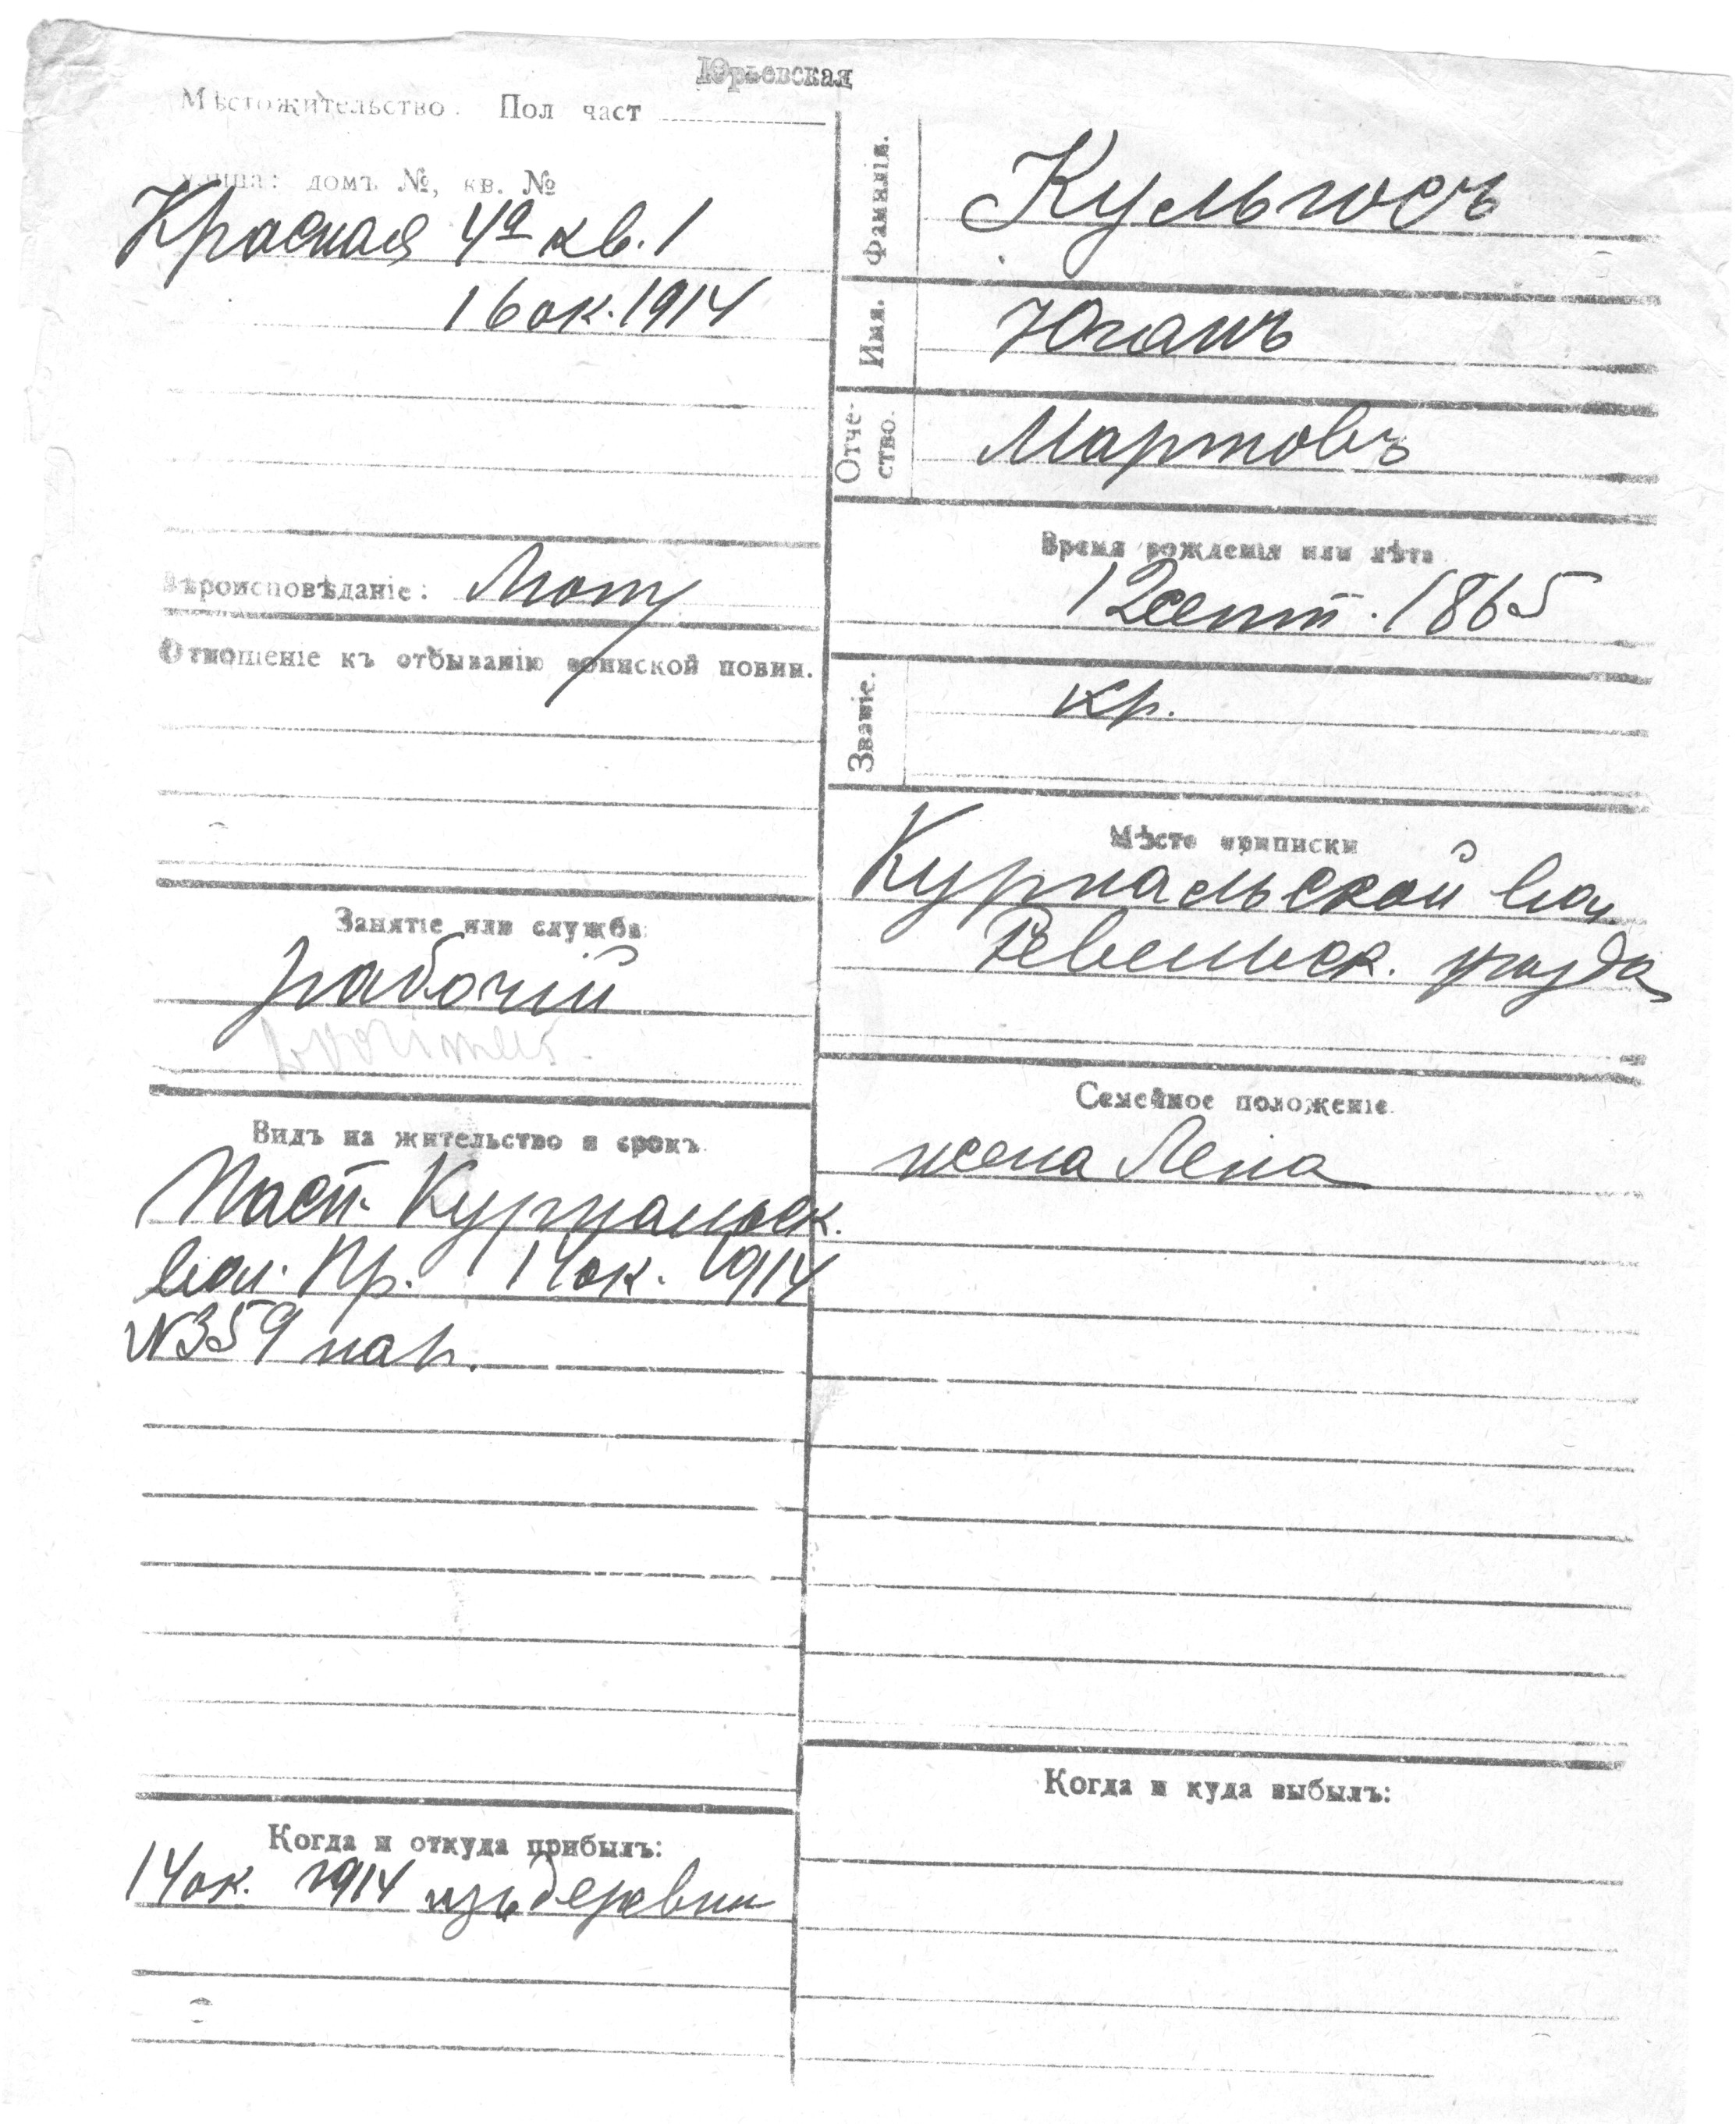 Юрьевская
Мѣстожительство. Пол част
улица: домъ №, кв. №
Красная 4а кв. 1
16 ок. 1914
Вѣроисповѣданіе: Лют
Отношеніе къ отбыванію воинской повин.
Занятіе или служба
рабочій
Видъ на жительство и срокъ.
Пасп. Куркальск.
вол. Пр. 14 ок. 1914
№359
Когда и откуда прибылъ:
14 ок. 1914 изъ деревни
Фамилія.
Имя.
Юганъ
Отче-
ство.
Мартовъ
Время рожденія или лѣта
12 сент. 1865
Званіе.
кр.
Мѣсто приписки
Куркальской вол.
Ревельск. уѣзда
Семейное положеніе.
жена Лена
Когда и куда выбылъ: